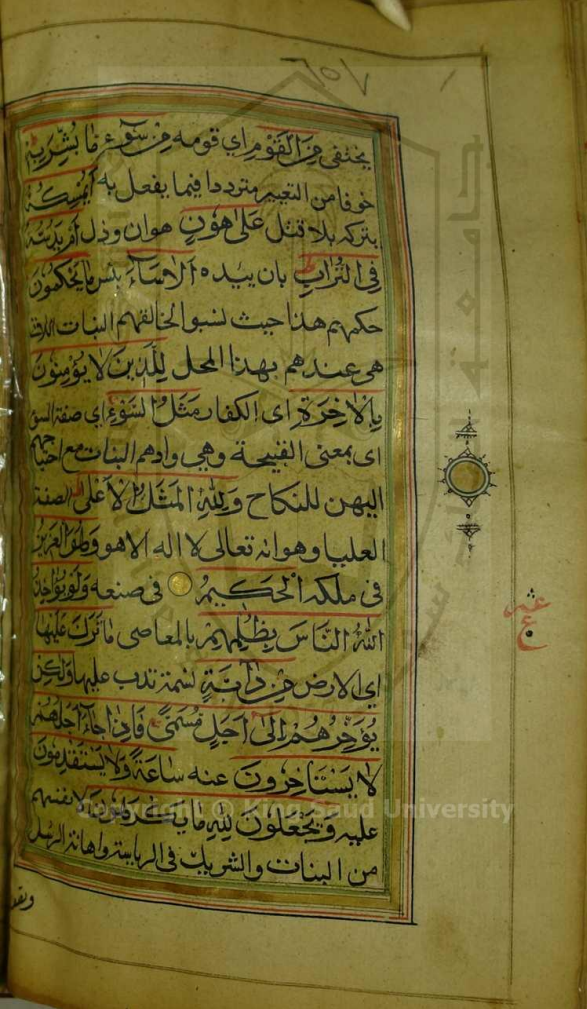 يختفى مِنَ الْقَوْمِ اي قومه مِنْ سُوۤءِ مَا بُشِّرَ بِهٖ
خوفا من التعيير مترددا فيما يفعل به اَيُمْسِكُهٗ
يتركه بلا قتل عَلٰى هُوْنٍ هوان وذل اَمْ يَدُسُّهٗ
فِى التُّرَابِ بان يئده اَلَا سَآءَ بئس مَا يَحْكُمُوْنَ
حكمهم هذا حيث نسبوا لخالقهم البنات اللاتى
هى عندهم بهذا المحل لِلَّذِيْنَ لَا يُؤْمِنُوْنَ
بِالْاٰخِرَةِ اى الكفار مَثَلُ السَّوْءِ اى صفة السوء
اى بمعنى القبيحة وهى وادهم البنات مع احتياجهم
اليهن للنكاح وَلِلّٰهِ الْمَثَلُ الْاَعْلٰى الصفة
العليا وهو انه تعالى لا اله الا هو وَهُوَ الْعَزِيْزُ
فى ملكه الْحَكِيْمُ فى صنعه وَلَوْ يُؤَاخِذُ
اللّٰهُ النَّاسَ بِظُلْمِهِمْ بالمعاصى مَا تَرَكَ عَلَيْهَا
اى الارض مِنْ دَآبَّةٍ نسمة تدب عليها وَلٰكِنْ
يُؤَخِّرُهُمْ اِلٰى اَجَلٍ مُّسَمًّى فَاِذَا جَآءَ اَجَلُهُمْ
لَا يَسْتَأْخِرُوْنَ عنه سَاعَةً وَّلَا يَسْتَقْدِمُوْنَ
عليه وَيَجْعَلُوْنَ لِلّٰهِ مَا يَكْرَهُوْنَ لانفسهم
من البنات والشريك فى الرياسة واهانة الرسل
Copyright © King Saud University